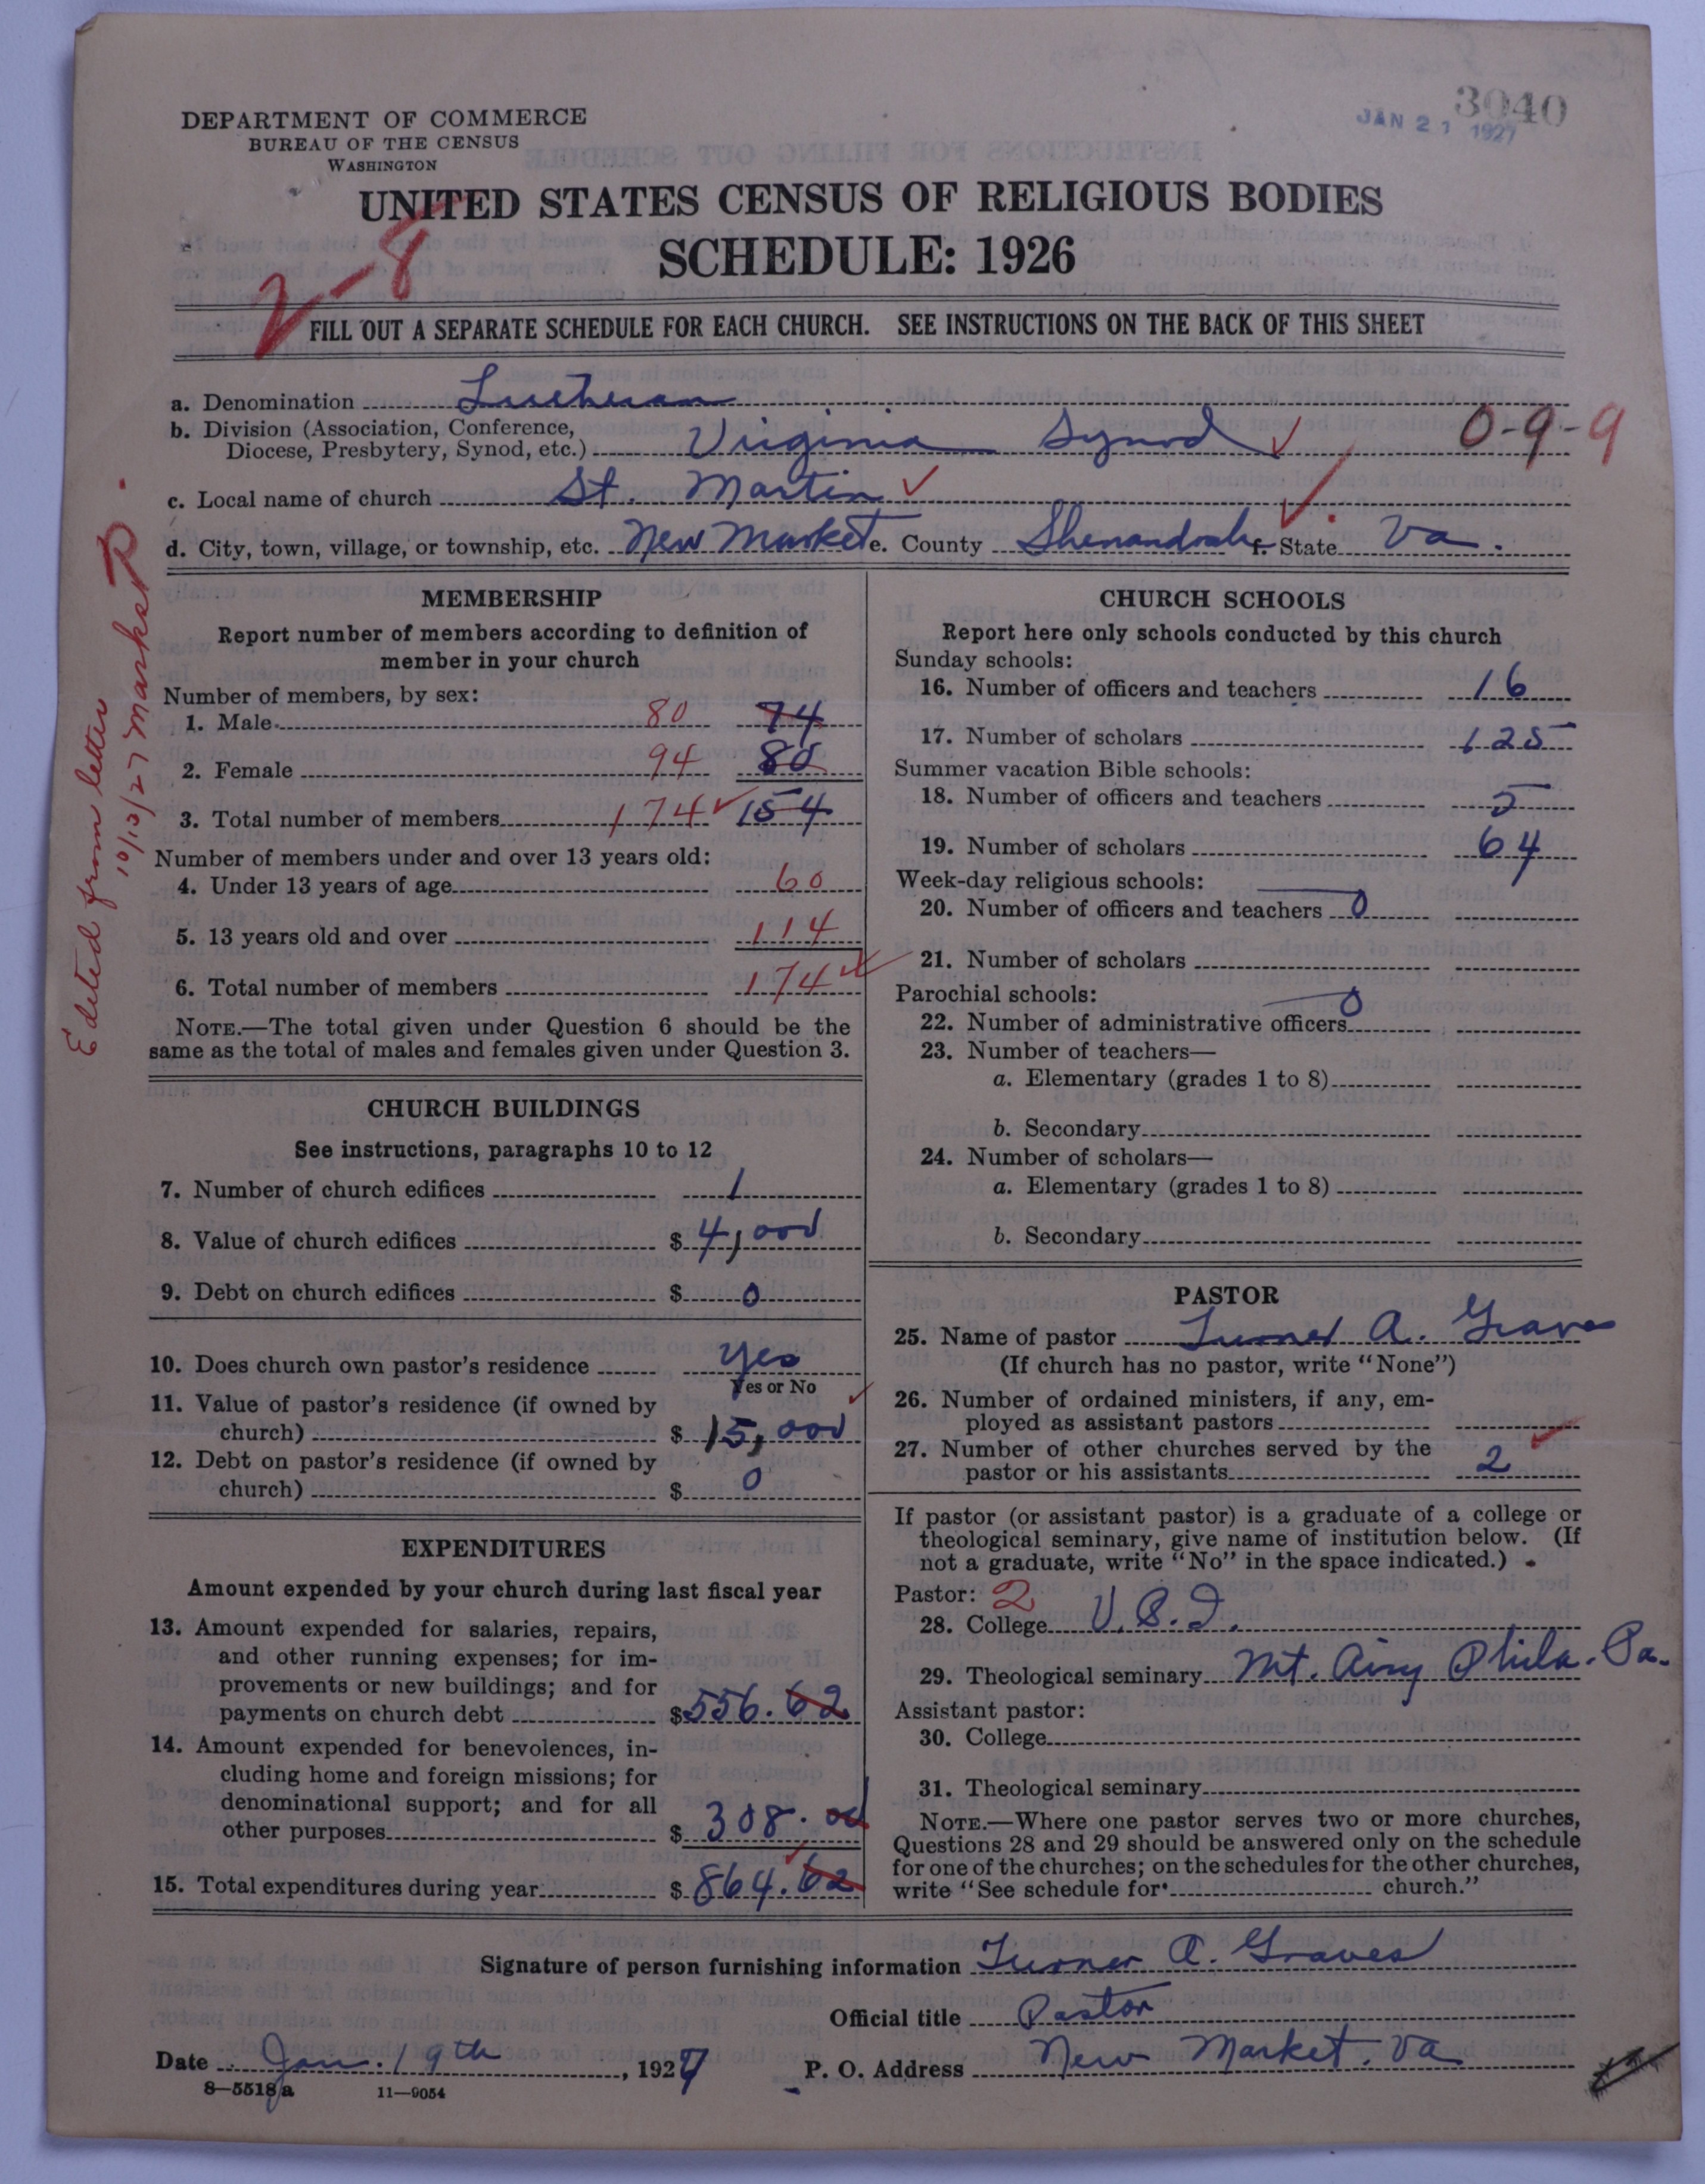 3040
JAN 21 1927
DEPARTMENT OF COMMERCE
BUREAU OF THE CENSUS
WASHINGTON
UNITED STATES CENSUS OF RELIGIOUS BODIES
SCHEDULE: 1926
2-8
FILL OUT A SEPARATE SCHEDULE FOR EACH CHURCH. SEE INSTRUCTIONS ON THE BACK OF THIS SHEET
a. Denomination Lutheran
b. Division (Association, Conference,
Diocese, Presbytery, Synod, etc.) Virginia Synod 0-9-9
c. Local name of church St. Martin
d. City, town, village, or township, etc. New Market e. County Shenandoah f. State Va.
Edited from letter
10/13/27 Market P.
MEMBERSHIP
Report number of members according to definition of
member in your church
Number of members, by sex:
1. Male 80 74
2. Female 94 80
3. Total number of members 174 154
Number of members under and over 13 years old:
4. Under 13 years of age 60
5. 13 years old and over 114
6. Total number of members 174
NOTE.—The total given under Question 6 should be the
same as the total of males and females given under Question 3.
CHURCH BUILDINGS
See instructions, paragraphs 10 to 12
7. Number of church edifices 1
8. Value of church edifices $ 4,000
9. Debt on church edifices $ 0
10. Does church own pastor's residence Yes
Yes or No
11. Value of pastor's residence (if owned by
church) $ 15,000
12. Debt on pastor's residence (if owned by
church) $ 0
EXPENDITURES
Amount expended by your church during last fiscal year
13. Amount expended for salaries, repairs,
and other running expenses; for im-
provements or new buildings; and for
payments on church debt $ 556.62
14. Amount expended for benevolences, in-
cluding home and foreign missions; for
denominational support; and for all
other purposes $ 308.00
15. Total expenditures during year $ 864.62
CHURCH SCHOOLS
Report here only schools conducted by this church
Sunday schools:
16. Number of officers and teachers 16
17. Number of scholars 125
Summer vacation Bible schools:
18. Number of officers and teachers 5
19. Number of scholars 64
Week-day religious schools:
20. Number of officers and teachers 0
21. Number of scholars
Parochial schools: 0
22. Number of administrative officers
23. Number of teachers—
a. Elementary (grades 1 to 8)
b. Secondary
24. Number of scholars—
a. Elementary (grades 1 to 8)
b. Secondary
PASTOR
25. Name of pastor Turner A. Graves
(If church has no pastor, write "None")
26. Number of ordained ministers, if any, em-
ployed as assistant pastors
27. Number of other churches served by the
pastor or his assistants 2
If pastor (or assistant pastor) is a graduate of a college or
theological seminary, give name of institution below. (If
not a graduate, write "No" in the space indicated.)
Pastor: 2
28. College
29. Theological seminary Mt. Airy Phila. Pa.
Assistant pastor:
30. College
31. Theological seminary
NOTE.—Where one pastor serves two or more churches,
Questions 28 and 29 should be answered only on the schedule
for one of the churches; on the schedules for the other churches,
write "See schedule for church."
Signature of person furnishing information Turner A. Graves
Official title Pastor
Date Jan. 19th, 1927 P. O. Address New Market, Va
8—5518a 11—9054